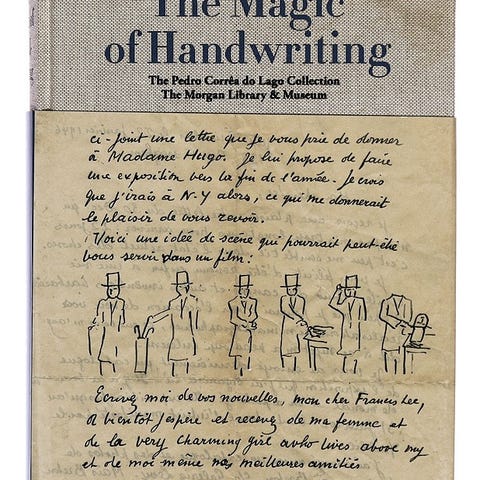 The Magic
of Handwriting
The Pedro Corrêa do Lago Collection
The Morgan Library & Museum
ci-joint une lettre que je vous prie de donner
à Madame Hugo. Je lui propose de faire
une exposition vers la fin de l'année. Je crois
que j'irais à N-Y alors, ce qui me donnerait
le plaisir de vous revoir.
Voici une idée de scène qui pourrait peut-être
vous servir dans un film:
Ecrivez moi de vos nouvelles, mon cher Francis Lee,
A bientôt j'espère et recevez de ma femme et
de la very charming girl who lives above my
et de moi même nos meilleures amitiés